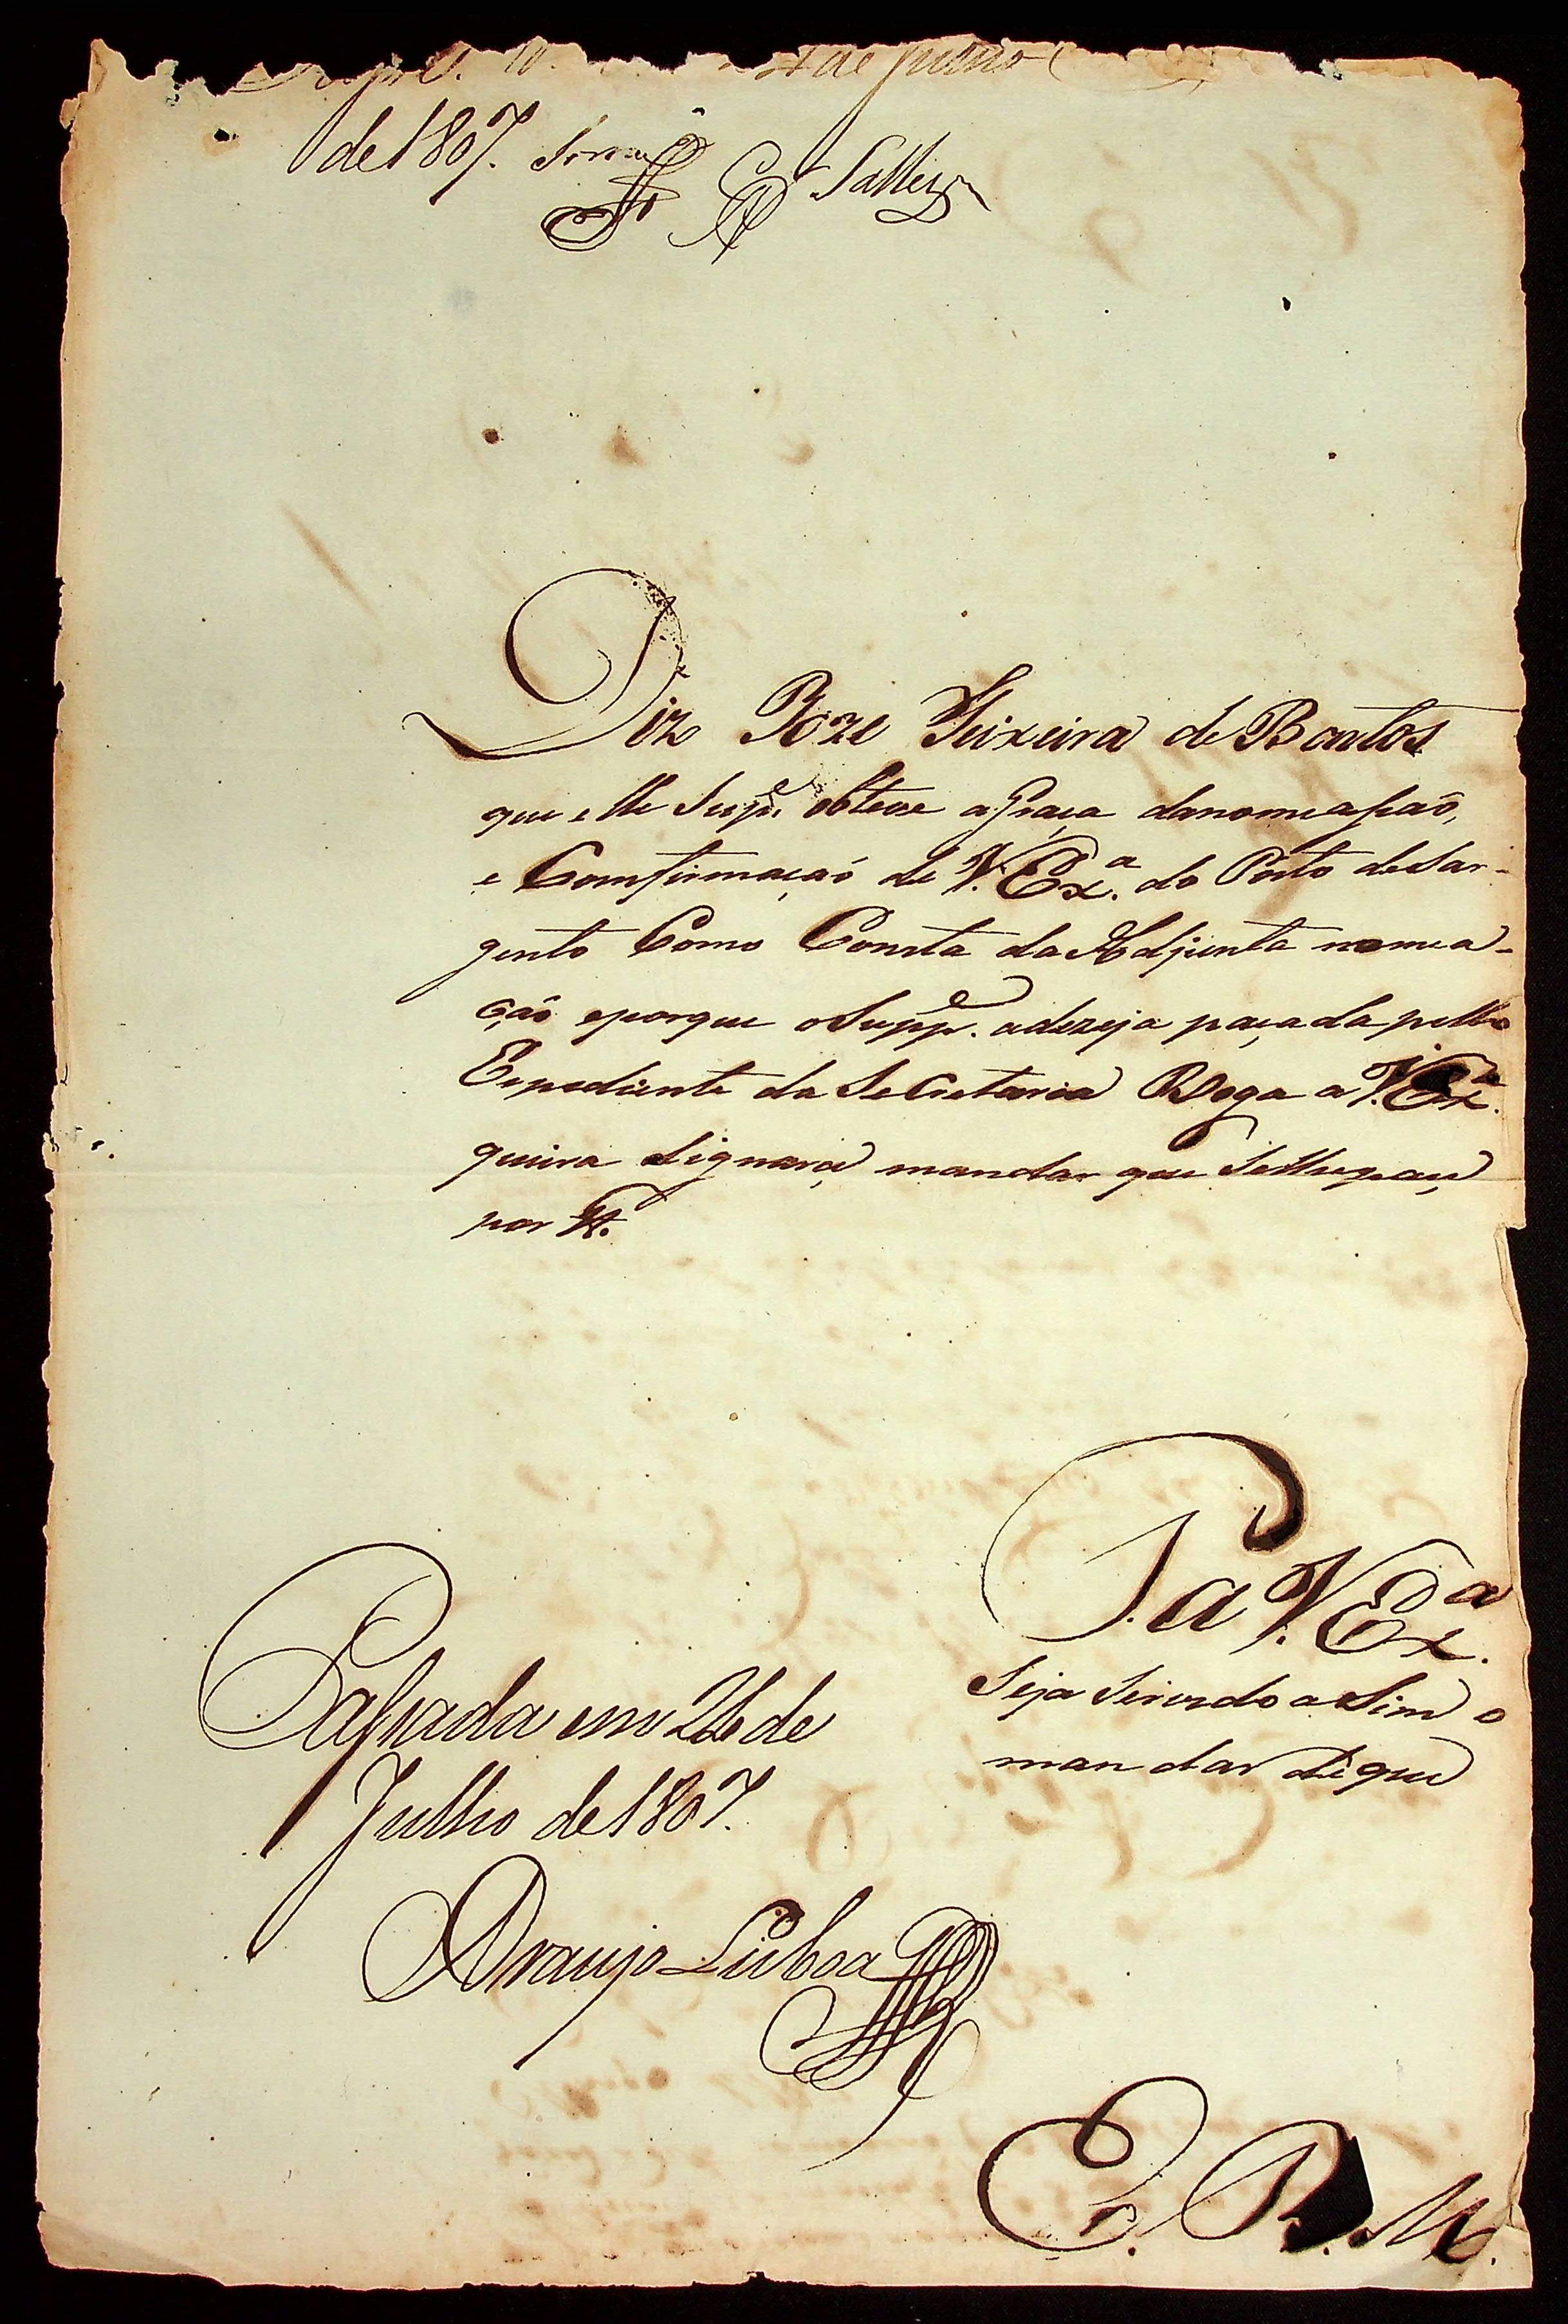 de Junho
de 1807.
Salles
Diz Joze Teixeira de Bastos
que elle Supe. obteve a Graça danomeasaõ,
e Comfirmaçaõ de V. Exa. do Posto deSar-
gento Como Consta da Adjunta nomea-
çaõ eporque o Suppe. adezeja paçada pello
Expediente da SeCretaria Roga a V. Exa.
queira dignarce mandar que selhepace
por tt.
P. a V. Exa.
Seja Servido asim o
mandar dêque
Passada em 26 de
Julho de 1807.
Araujo Lisboa
E. R. M.